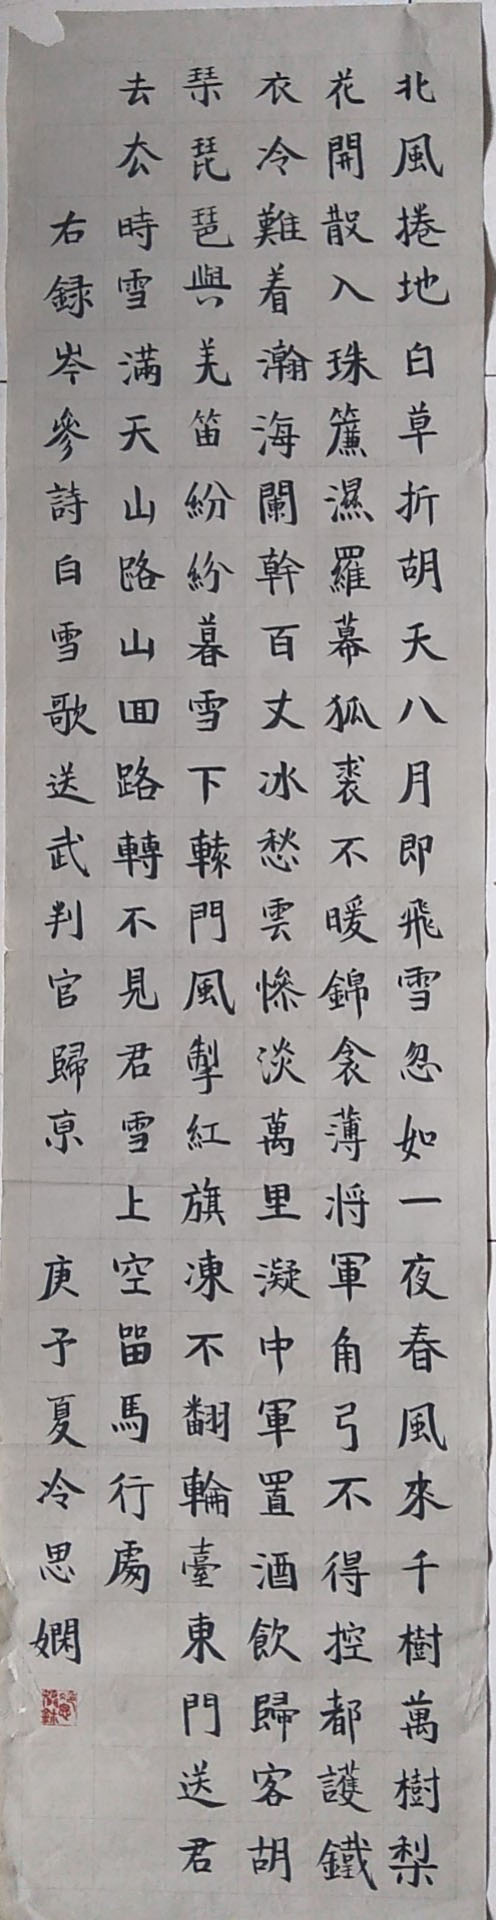 北風捲地白草折胡天八月即飛雪忽如一夜春風來千樹萬樹梨
花開散入珠簾濕羅幕狐裘不暖錦衾薄將軍角弓不得控都護鐵
衣冷難着瀚海闌幹百丈冰愁雲慘淡萬里凝中軍置酒飲歸客胡
琹琵琶與羌笛紛紛暮雪下轅門風掣紅旗凍不翻輪臺東門送君
去厺時雪滿天山路山回路轉不見君雪上空留馬行處
右録岑參詩白雪歌送武判官歸京 庚子夏冷思嫻